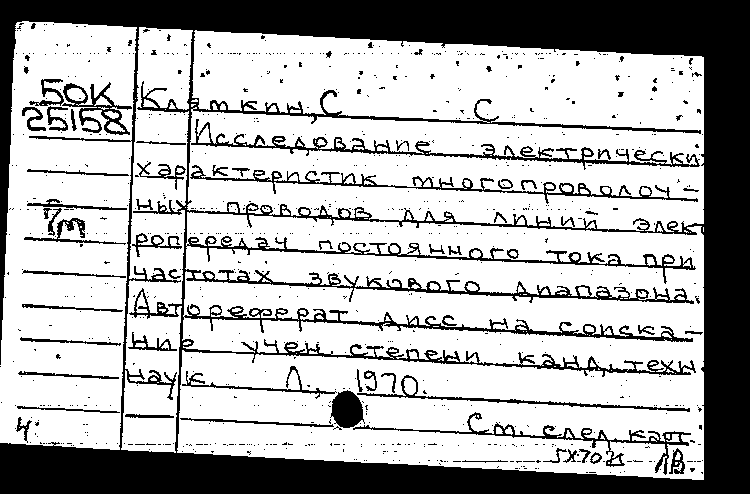 50К Кляткин, С С
25158
Исследование электрически
характеристик многопроволоч-
ных проводов для линий элект
7/m
ропередач постоянного тока при
частотах звукового диапазона.
Автореферат дисс. на соиска-
ние учен. степени канд. техн.
наук. Л., 1970.
См. след карт.
4.
5X70